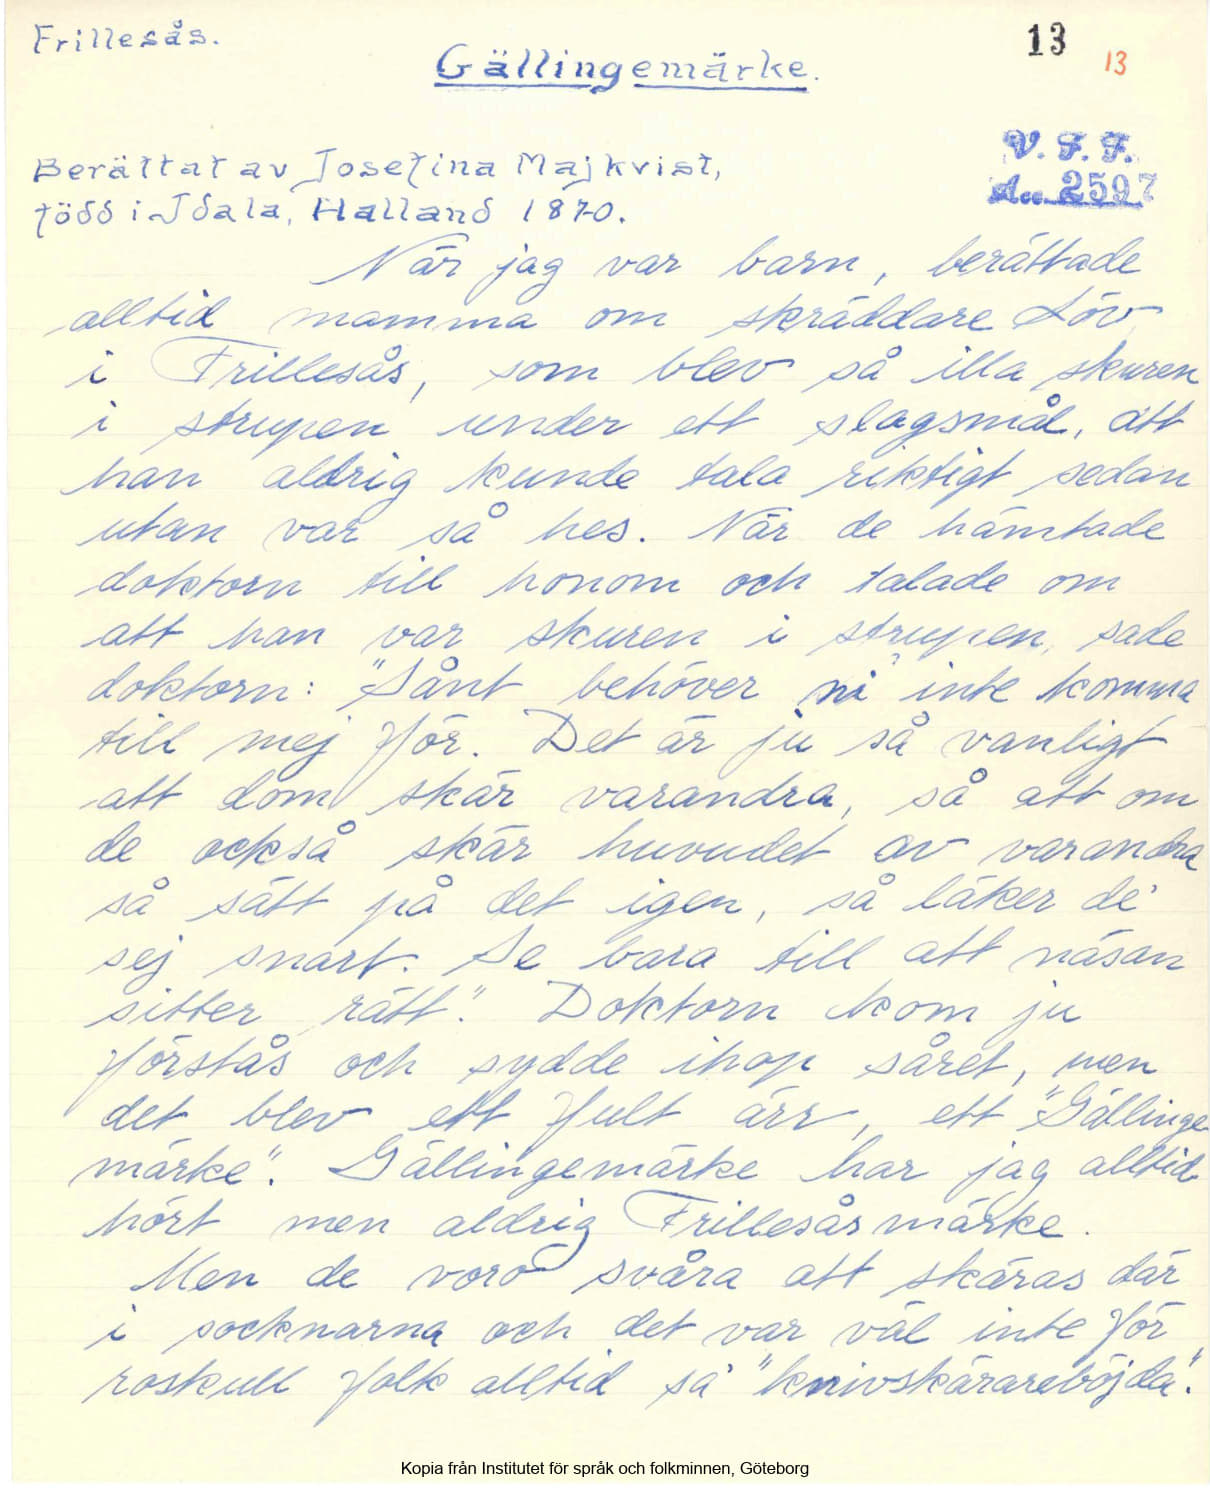 Frillesås.
13
13
Gällingemärke.
V. F. F.
Acc. 2597
Berättat av Josefina Majkvist,
född i Idala, Halland 1870.
När jag var barn, berättade
alltid mamma om skräddare Löv
i Frillesås, som blev så illa skuren
i strupen under ett slagsmål, att
han aldrig kunde tala riktigt sedan
utan var så hes. När de hämtade
doktorn till honom och talade om
att han var skuren i strupen, sade
doktorn: "Sånt behöver ni inte komma
till mej för. Det är ju så vanligt
att dom skär varandra, så att om
de också skär huvudet av varandra
så sätt på det igen, så läker de'
sej snart. Se bara till att näsan
sitter rätt". Doktorn kom ju
förstås och sydde ihop såret, men
det blev ett fult ärr, ett "Gällinge
märke". Gällingemärke har jag alltid
hört men aldrig Frillesåsmärke.
Men de voro svåra att skäras där
i socknarna och det var väl inte för
roskull folk alltid sa' "knivskärareböjda".
Kopia från Institutet för språk och folkminnen, Göteborg